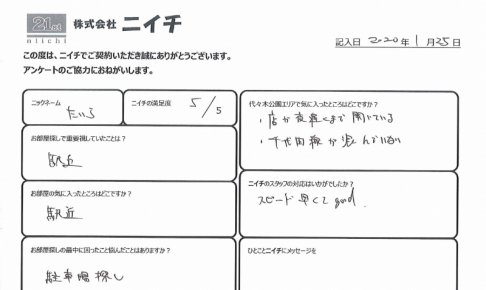 21st
niichi
株式会社 ニイチ
記入日 2020年 1月25日
この度は、ニイチでご契約いただき誠にありがとうございます。
アンケートのご協力におねがいします。
ニックネーム
たいち
ニイチの満足度
5/5
お部屋探しで重要視していたことは?
駅近
お部屋の気に入ったところはどこですか?
駅近
お部屋探しの最中に困ったこと悩んだことはありますか?
駐車場探し
代々木公園エリアで気に入ったところはどこですか?
・店が夜遅くまで開いている
・千代田線が混んでいない
ニイチのスタッフの対応はいかがでしたか?
スピード早くてgood.
ひとことニイチにメッセージを